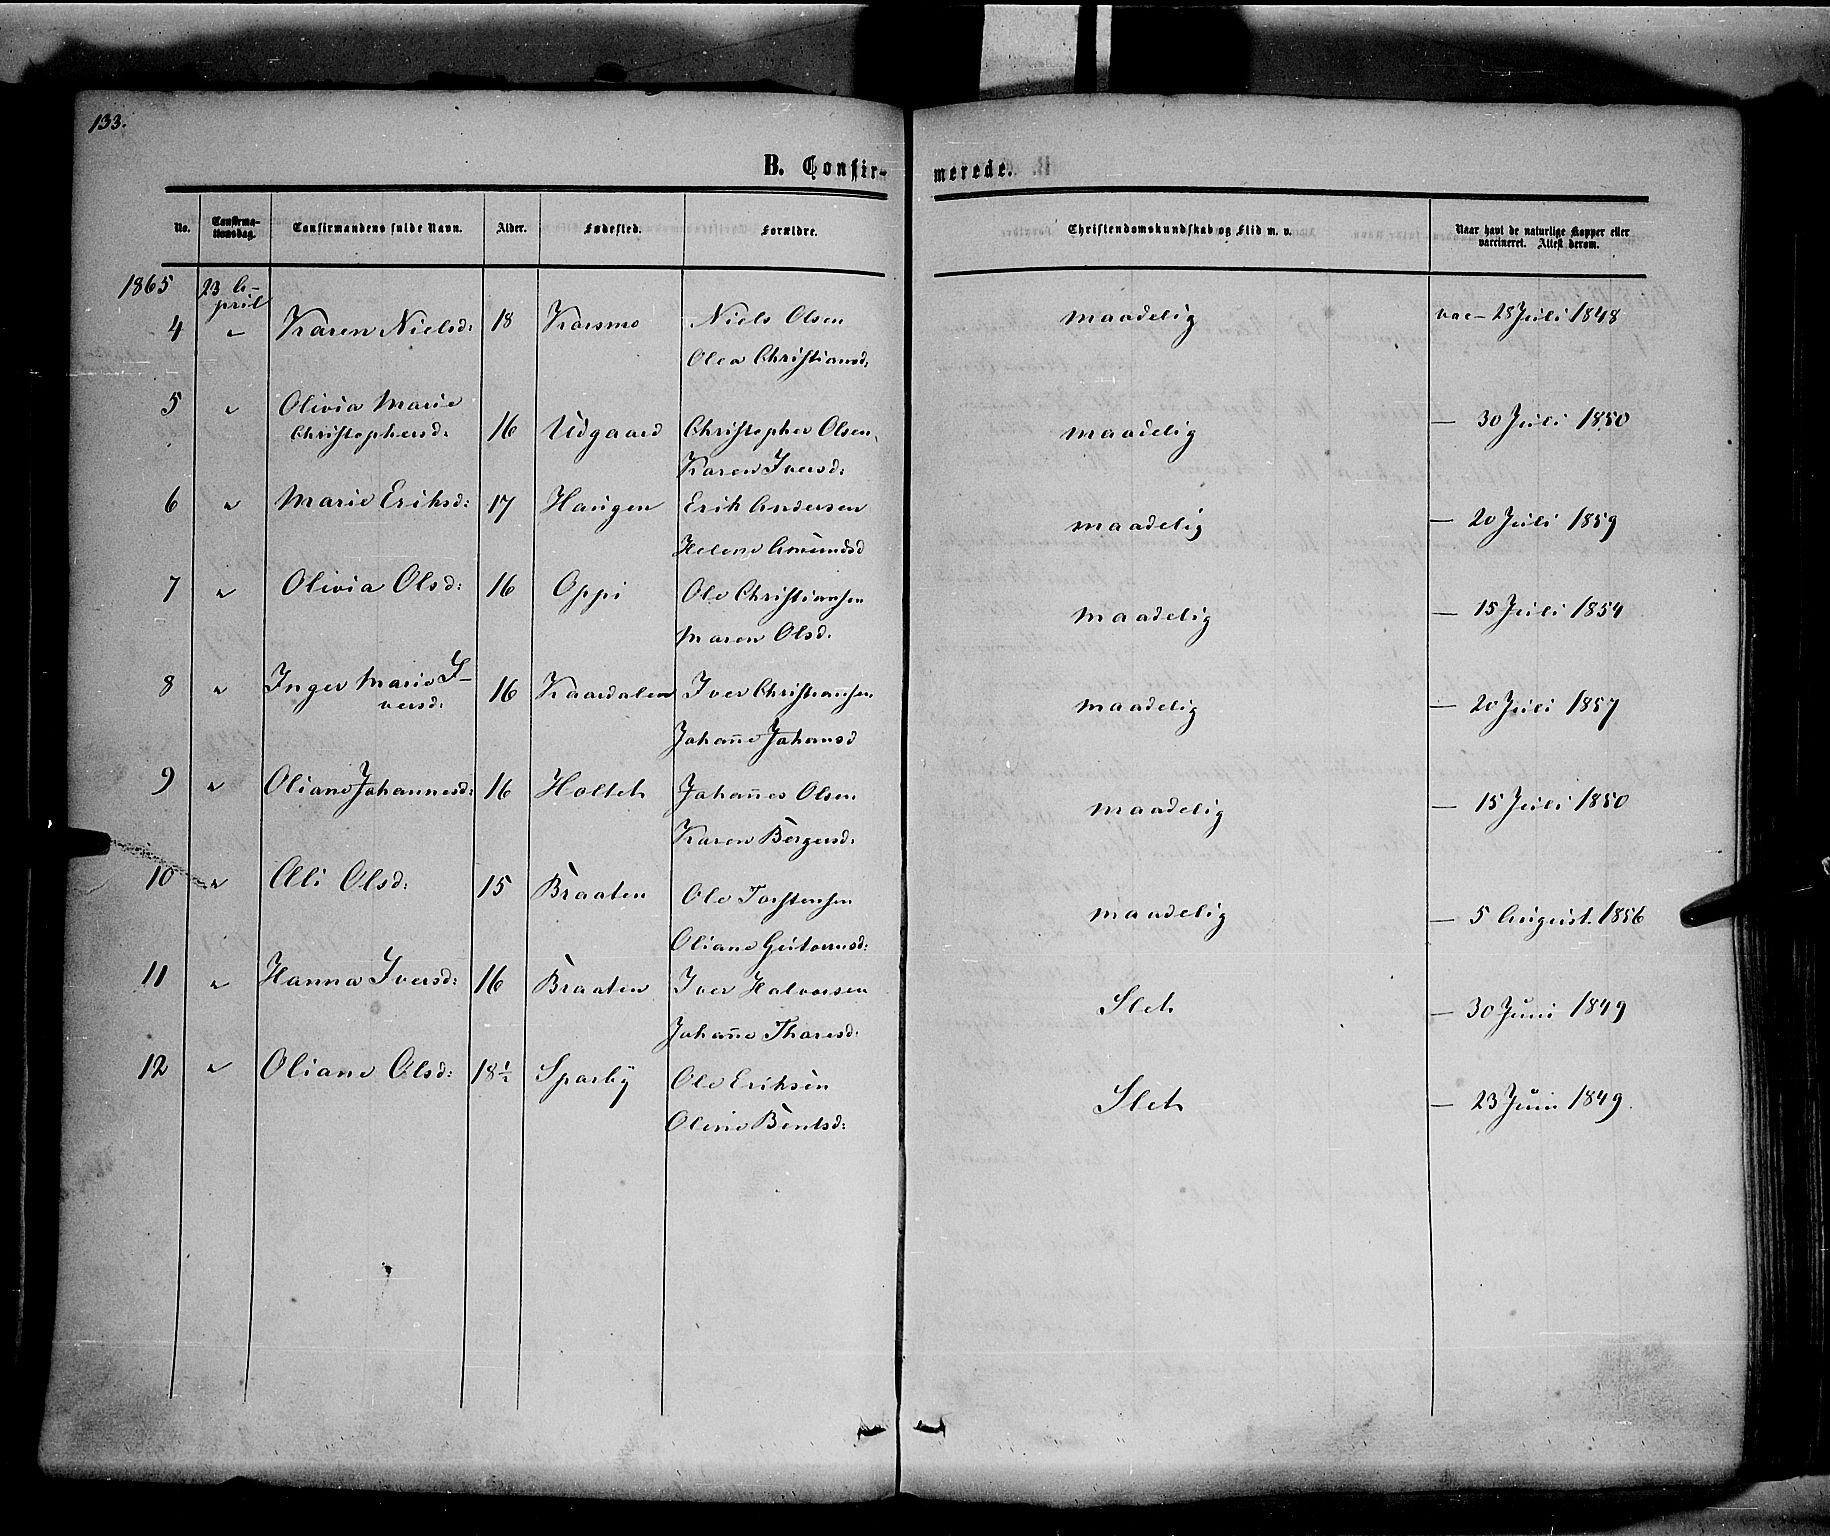 133.
B. Confir-
merede.
No.
Confirma-
tionsdag.
Confirmandens fulde Navn.
Alder.
Fødested.
Forældre.
Christendomskundskab og Flid m. v.
Naar havt de naturlige Kopper eller
vaccineret. Attest derom.
1865 23 A-
pril
4 " Karen Nielsd: 18 Korsmo Niels Olsen maadelig vac- 28 Juli 1848
Olea Christiansd:
5 " Olivia Marie
Christophersd: 16 Udgaard Christopher Olsen, maadelig — 30 Juli 1850
Karen Iversd:
6 " Marie Eriksd: 17 Haugen Erik Andersen maadelig — 20 Juli 1859
Helene Amundsd
7 " Olivia Olsd: 16 Oppi Ole Christiansen maadelig — 15 Juli 1854
Maren Olsd.
8 " Inger Marie I-
versd: 16 Kaardalen Iver Christiansen maadelig — 20 Juli 1857
Johañe Johansd
9 " Oliane Johannesd: 16 Holtet Johañes Olsen maadelig — 15 Juli 1850
Karen Borgersd:
10 " Olsd: 15 Braaten Ole Torstensen maadelig — 5 August 1856
Oliane
11 " Hanna Iversd: 16 Braaten Iver Halvorsen Slet — 30 Juni 1849
Johañe Thoresd:
12 " Oliane Olsd: 18½ Sparby Ole Eriksen Slet — 23 Juni 1849.
Oline Bentsd: